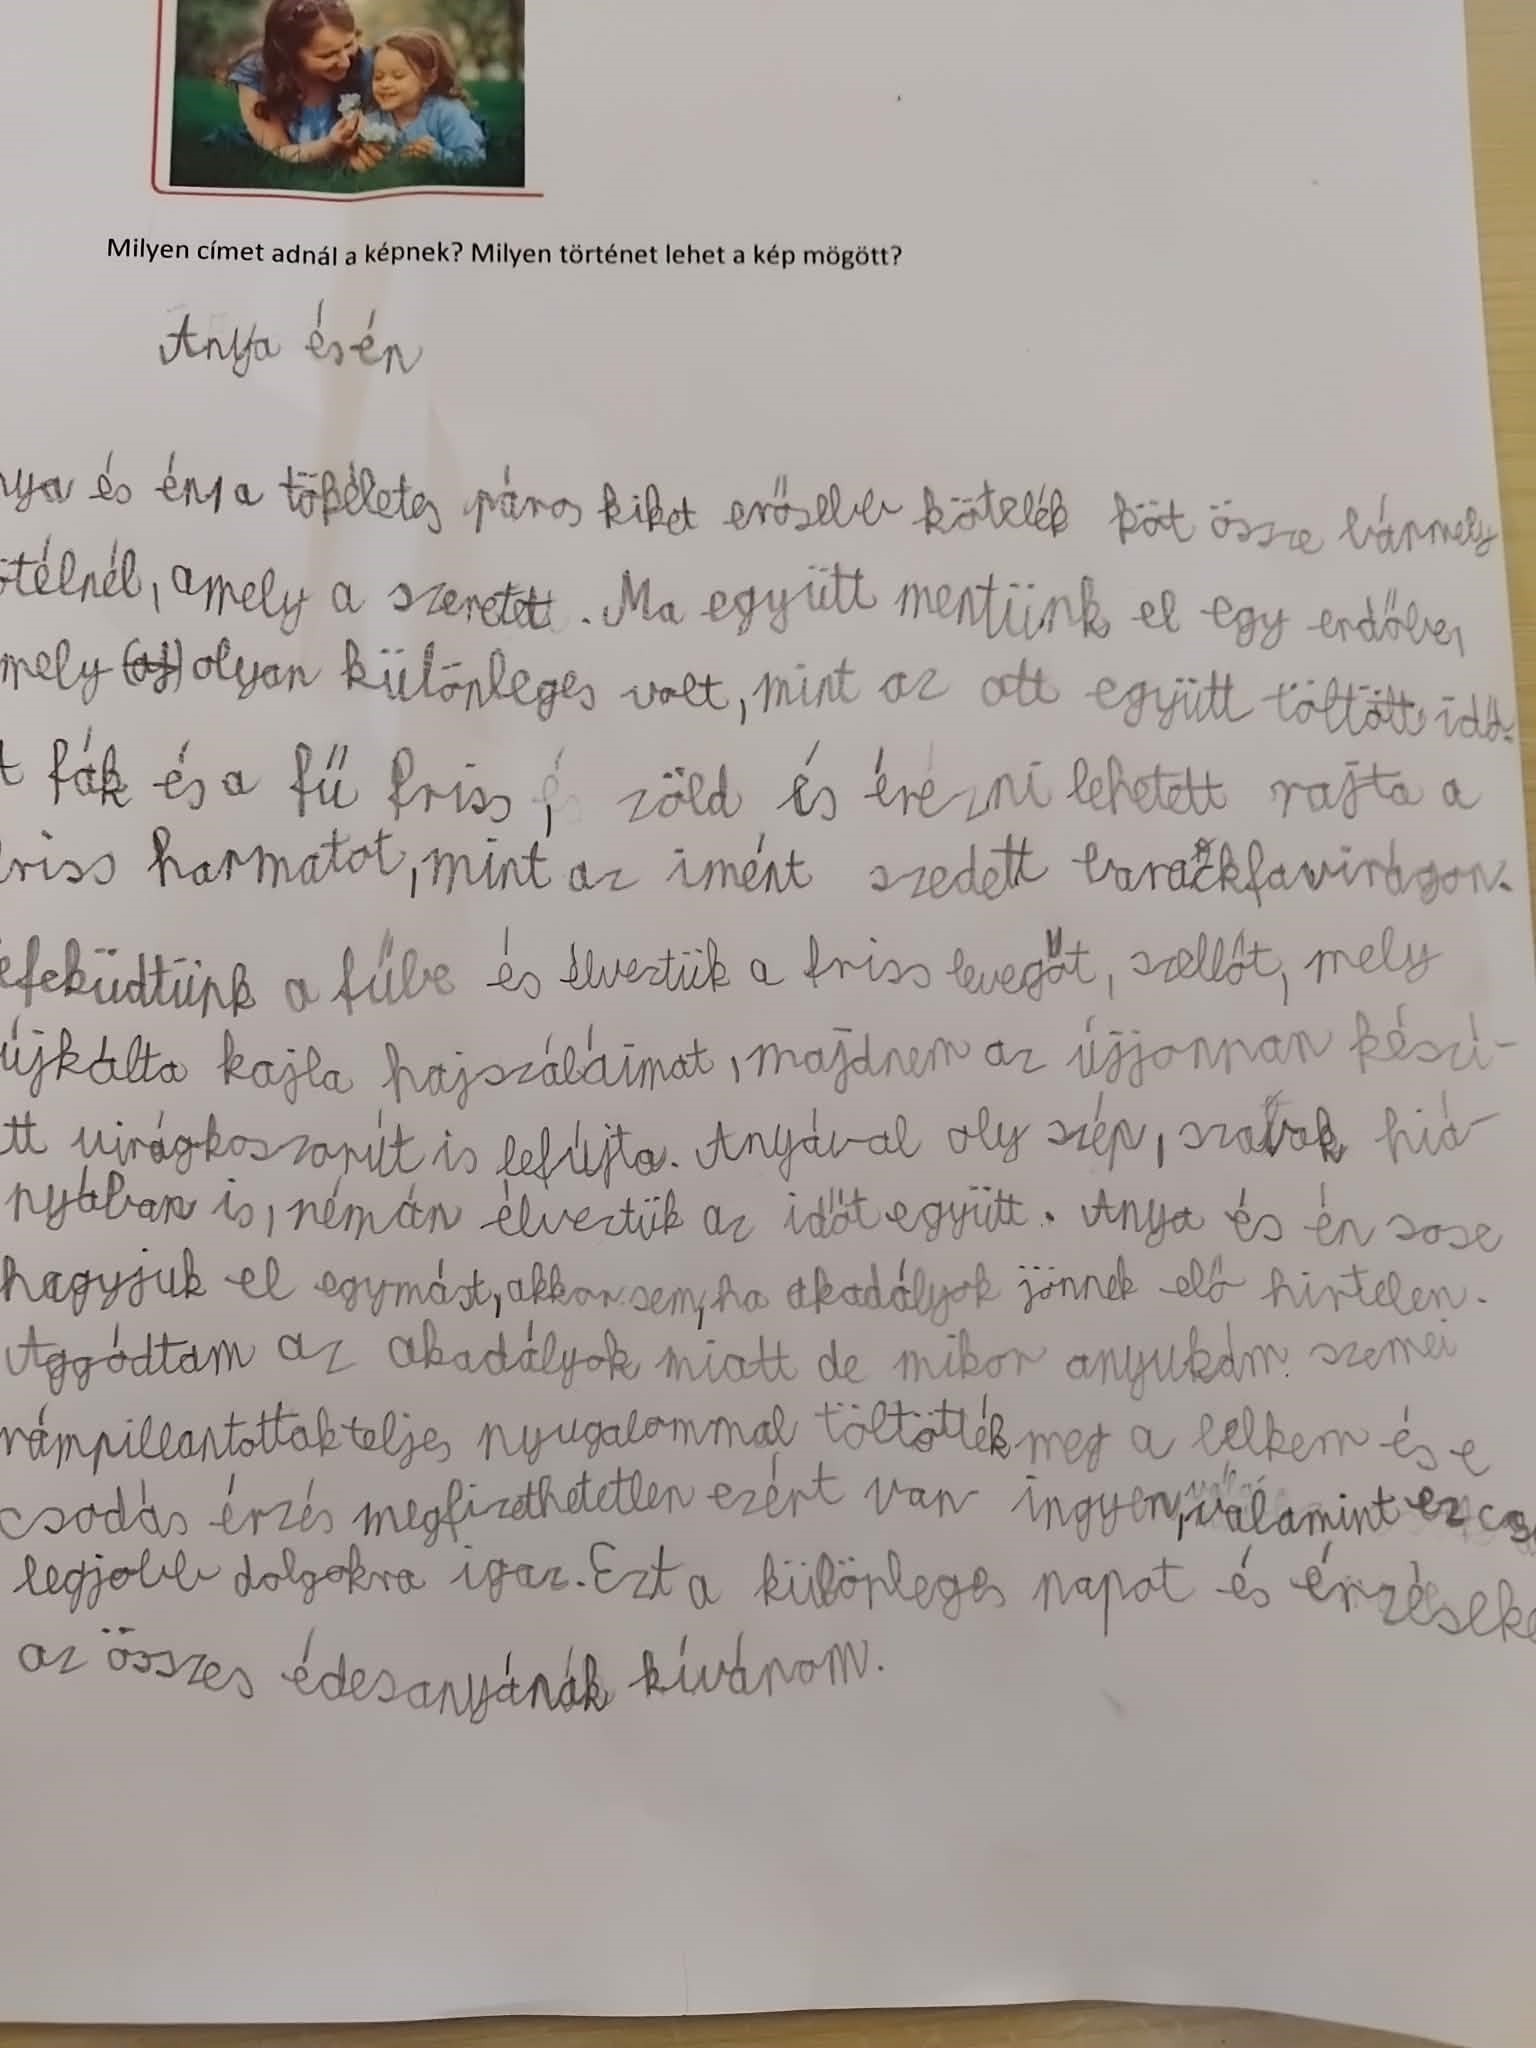 Milyen címet adnál a képnek? Milyen történet lehet a kép mögött?
Anya és én
nya és én, a tökéletes páros kiket erősebb kötelék köt össze bármely
ötélnél, amely a szeretett. Ma együtt mentünk el egy erdőbe,
mely olyan különleges volt, mint az ott együtt töltött idő.
t fák és a fű friss, zöld és érezni lehetett rajta a
friss harmatot, mint az imént szedett barackfavirágon.
efeküdtünk a fűbe és élveztük a friss levegőt, szellőt, mely
újkálta kajla hajszáláimat, majdnem az újjonnan készí-
tt virágkoszorút is lefújta. Anyával oly szép, szavak hiá-
nyában is, némán élveztük az időt együtt. Anya és én sose
hagyjuk el egymást, akkor sem, ha akadályok jönnek elő hirtelen.
Aggódtam az akadályok miatt de mikor anyukám szemei
rámpillantottak teljes nyugalommal töltötték meg a lelkem és e
csodás érzés megfizethetetlen ezért van ingyen, valamint ez cs
legjobb dolgokra igaz. Ezt a különleges napot és érzéseke
az összes édesanyának kívánom.